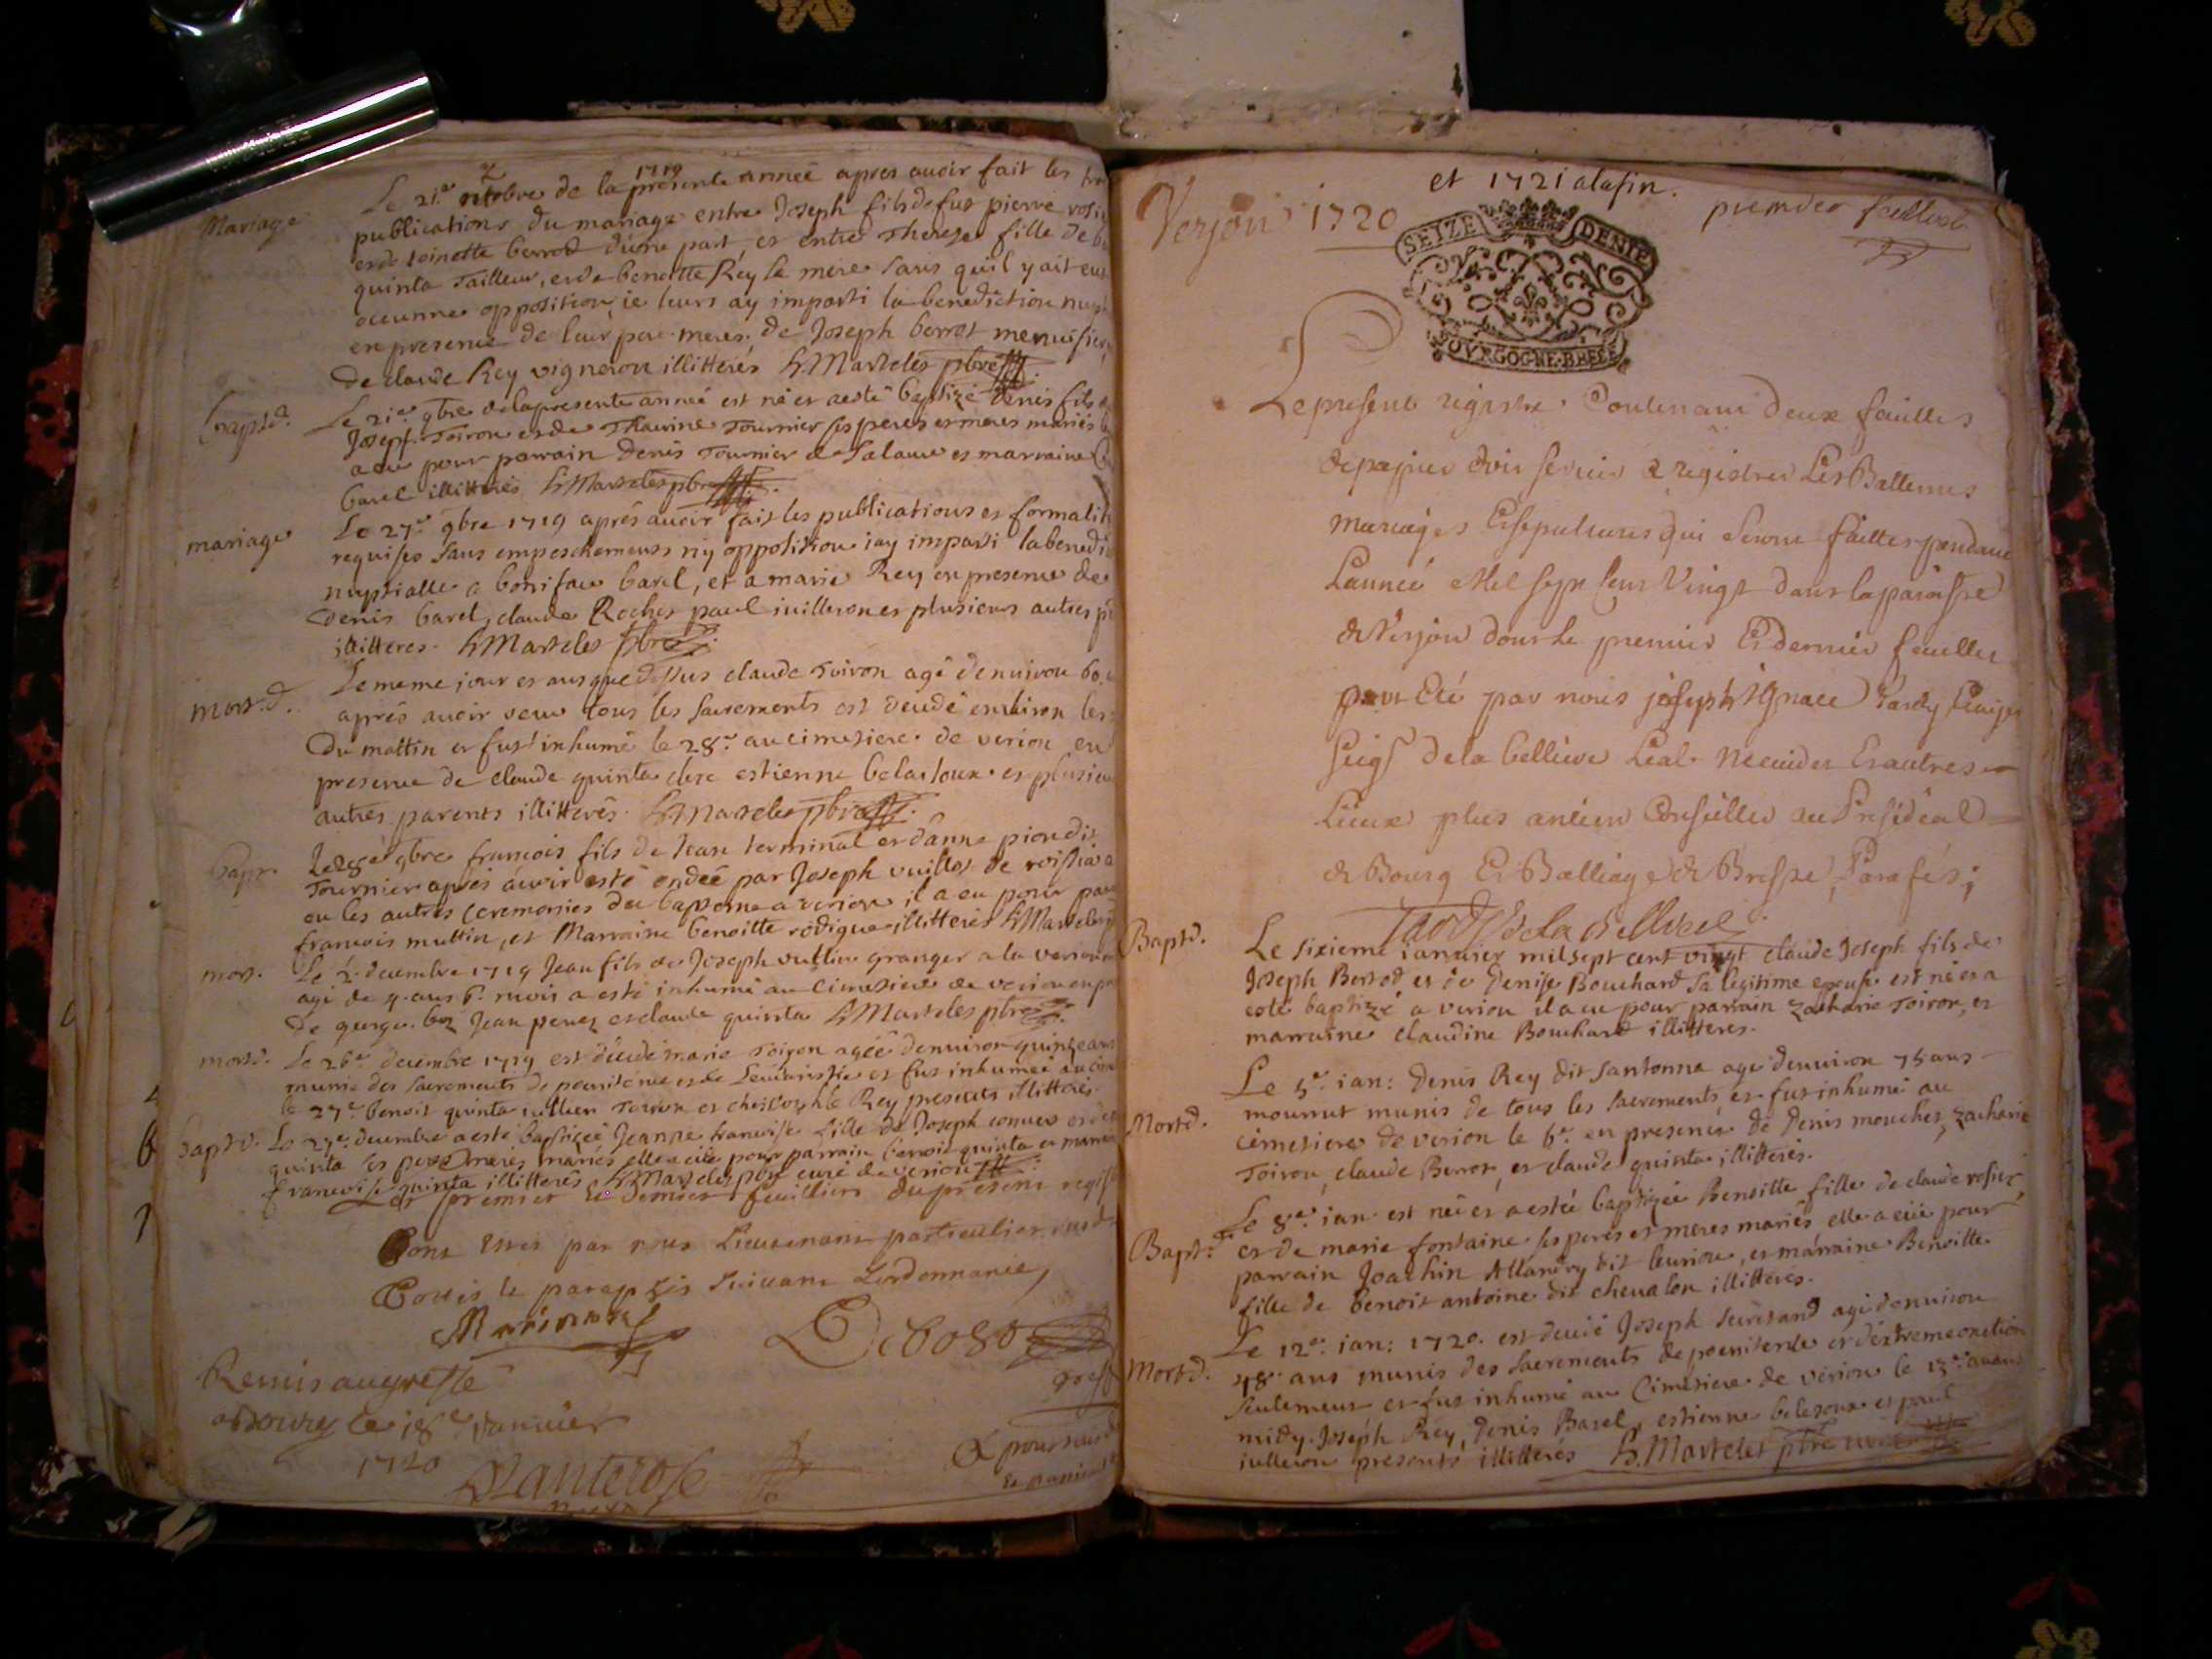 Mariage
Le 21.e octobre de la presente année apres avoir fait les
1719
publications du mariage entre Joseph fils de fut pierre
et de toinette berrod d'une part, et entre Therese fille de
quinta Tailleur, et de benoitte Rey sa mere sans qu'il y ait eut
aucunne opposition, ie leurs ay imparti la benediction
en presence de leur pere. meres. de Joseph berrot menuisier,
de claude Rey vigneron illitterés h. Marteles pbre
bapt.
Le 21.e 9bre de la presente année est né et a esté baptizé denis fils
Joseph Toiron et de Thevine Tournier ses peres et meres mariés
a eu pour parrain denis Tournier de Salaue et marraine
barel illitterés h Marteles pbre
mariage
Le 27.e 9bre 1719 aprés avoir fait les publications et formalit
requises sans empeschements ny opposition iay imparti la benedi
nuptialle a boniface barel, et a marie Rey en presence de
denis barel, claude Roches paul iuilleron et plusieurs autres
illitteres. h Marteles pbre
mort.d.
Le meme jour et an que dessus claude Toiron agé d'environ 60.
aprés avoir receu tous les sacrements est decedé environ les
du mattin et fust inhumé le 28.e au cimetiere de verion en
presence de claude quinta clerc estienne belatoux et plusieu
autres parents illitterés. h Marteles pbre
bapt.
Le 28e 9bre francois fils de Jean terminal et d'anne piondit
Tournier aprés avoir esté ondée par Joseph vuillot de
eu les autres ceremonies du baptesme a verion il a eu pour par
francois muttin, et Marraine benoitte rodigue illitterés h Marteles
mort.
Le 2. decembre 1719 Jean fils de Joseph vuttin granger a la verion
agé de 4. ans 6. mois a esté inhumé au cimetiere de verion en
de george. boz Jean perrez et claude quinta h Marteles pbre
mortd.
Le 26.e decembre 1719 est decedé marie Toiron agée d'environ quinze ans
munie des sacrements de penitence et de Leucaristie et fut inhumée au cim
le 27.e benoit quinta iullien Toiron et christophle Rey presents illitterés.
baptd.
Le 27.e decembre a esté baptizée Jeanne francoise fille de Joseph convers et de
quinta ses pere et meres mariés elle a eue pour parrain benoit quinta et marrain
francoise quinta illitterés h Marteles pbre curé de verion
Les premier et dernier feuilliers du present regist
sont par nous Lieutenant particulier
Cottés le paraphés suivant Lordonnance,
Remis au greffe
a Bourg le 18e Janvier
1720
Verjon 1720
et 1721 a la fin.
premier feuillet
SEIZE DENIE
BOVRGOGNE·BRESSE
Le present registre Contenant deux feuilles
de papier doit servir a registrer Les Battemes
mariages Et sepultures qui seront faittes pendant
Lannée Mil sept Cent Vingt dans la paroisse
de Verjon dont Le premier Et dernier feuillet
ont Eté par nous joseph Ignace Tardy
seig.r de la belliere Leal. Et autres
Lieux plus ancien Conseiller au Presidial
de Bourg Et Balliage de Bresse, Parafés;
Tardy de la belliere
Baptd.
Le sixieme ianvier mil sept cent vingt claude Joseph fils de
Joseph Berrod et de Denise Bouchard sa legitime epouse est né et a
esté baptizé a verion il a eu pour parrain zacharie Toiron, et
marraine claudine Bouchard illitterés.
Mortd.
Le 5.e ian: denis Rey dit santonna agé d'environ 75 ans
mourrut munis de tous les sacrements et fut inhumé au
cimetiere de verion le 6.e en presence de denis mouches, zacharie
Toiron, claude Berrot, et claude quinta illitterés.
Bapt:
Le 8.e ian. est née et a estée baptizée Benoitte fille de claude rosier
et de marie fontaine ses peres et meres mariés elle a eue pour
parrain Joachin Allandry dit leurion, et marraine Benoitte
fille de benoit antoine dit chevalon illitterés.
Mortd.
Le 12.e ian: 1720. est decedé Joseph secretand agé d'environ
48 ans munis des sacrements de poenitence et d'extreme onction
seulement et fut inhumé au Cimetiere de verion le 13.e avant
midy. Joseph Rey, denis Barel, estienne belatoux et paul
iulleron presents illitterés h. Marteles pbre